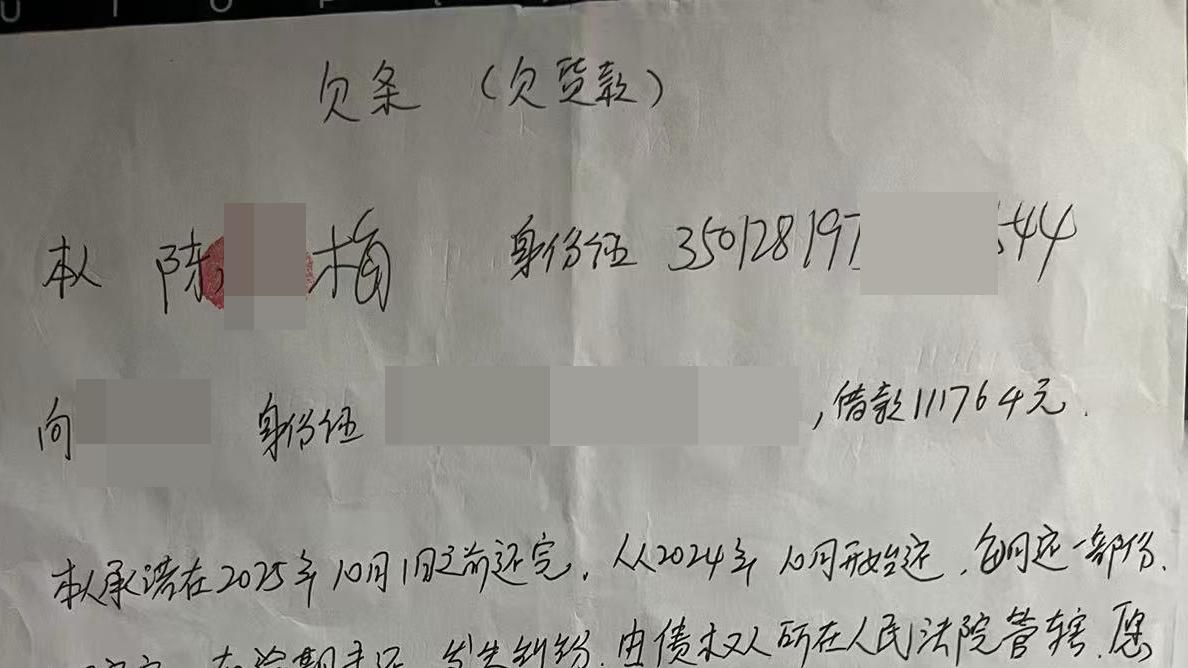 欠条 (欠货款)
本人 陈 梅 身份证 35012819 544
向 身份证 ,借款111764元.
本人承诺在2025年10月1日之前还完.从2024年10月开始还.每月还一部份.
发生纠纷.由债权人所在人民法院管辖.愿